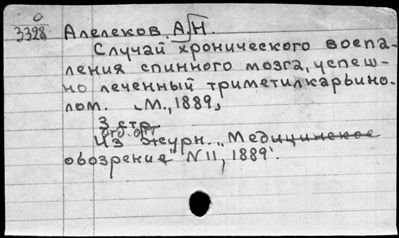 0
3328 Алелеков, А|Н.
Случай хронического воспа-
ления спинного мозга, успеш-
но леченный триметилкарбино-
лом. М., 1889,
3 стр.
отд. отт.
Из журн. "Медицинское
обозрение" N 11, 1889.